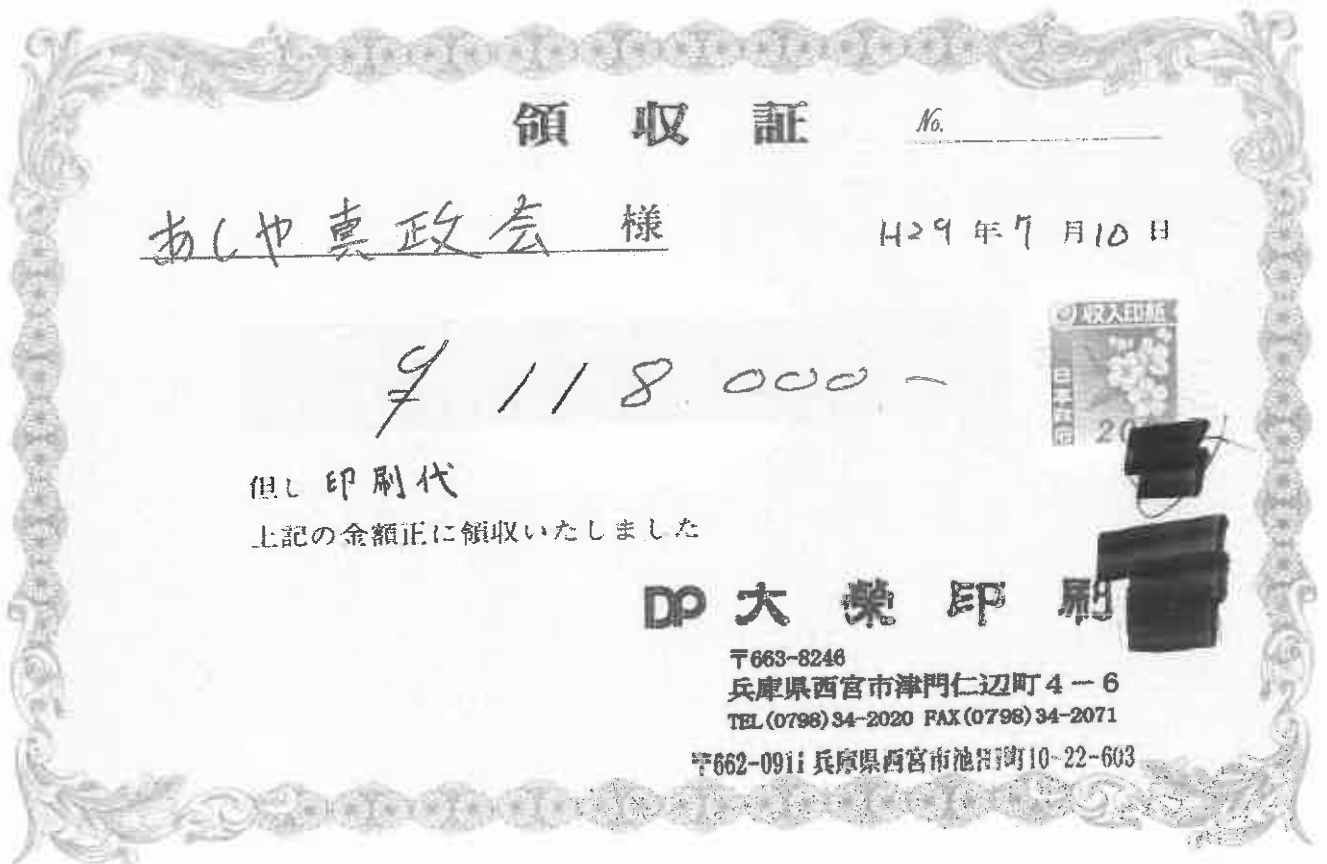 領収証 No.
あしや真政会 様
H29年7月10日
収入印紙
日本政府
20
¥118.000-
但し 印刷代
上記の金額正に領収いたしました
DP 大榮印刷
〒663-8246
兵庫県西宮市津門仁辺町4-6
TEL(0798)34-2020 FAX(0798)34-2071
〒662-0911 兵庫県西宮市池田町10-22-603